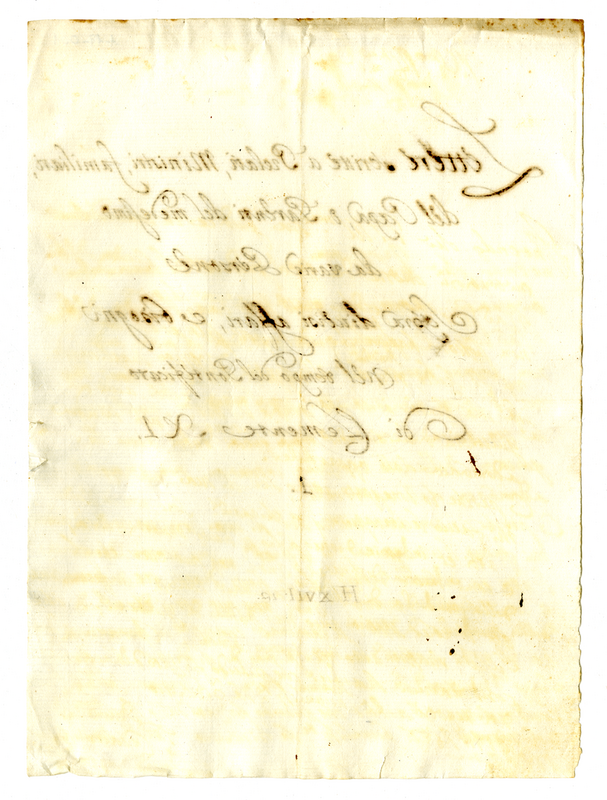 Lettere scritte a Prelati, Ministri, familiari,
del Papa, o Parenti del medesimo
da varie Persone
Sopra diversi affari, e bisogni
nel tempo del Pontificato
di Clemente XI.
1.